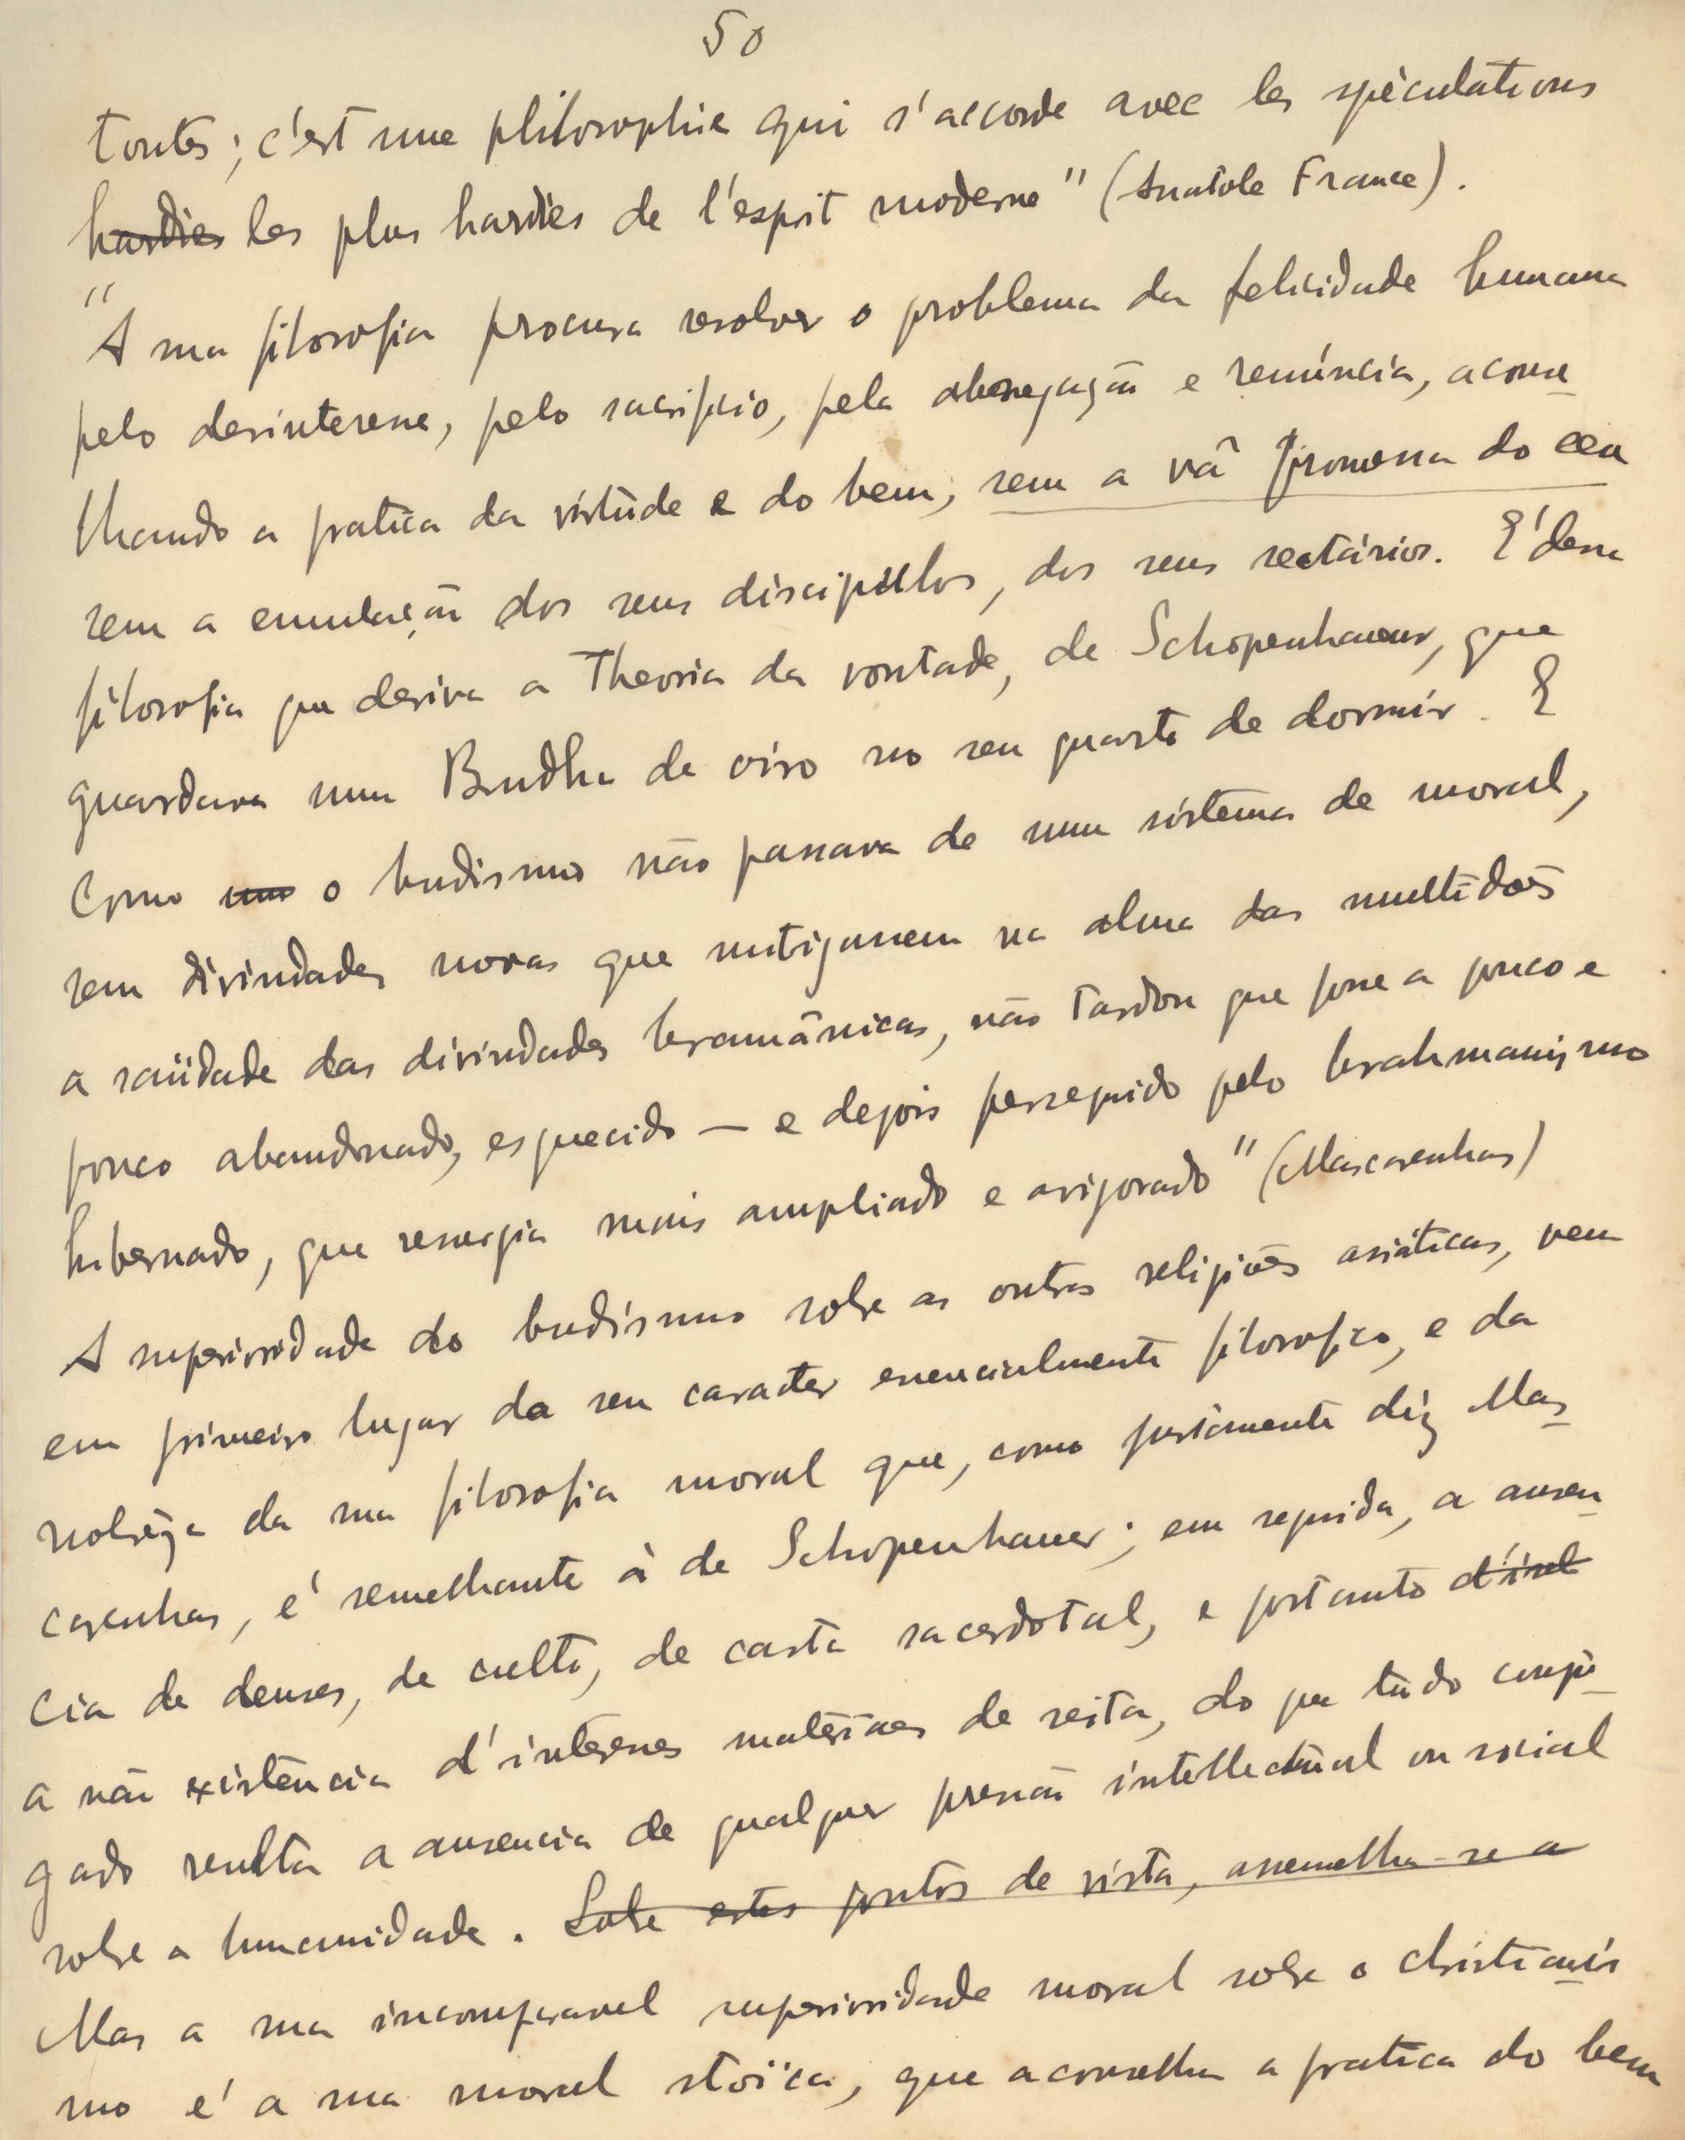 50
toutes; c'est une philosophie qui s'accorde avec les spéculations
hardies les plus hardies de l'esprit moderne" (Anatole France).
"A sua filosofia procura resolver o problema da felicidade humana
pelo desinteresse, pelo sacrificio, pela abenegação e renúncia, acons-
lhando a pratica da virtude e do bem, sem a vã promessa do ceu
sem a emulação dos seus discipulos, dos seus sectários. E' dessa
filosofia que deriva a Theoria da vontade, de Schopenhauer, que
guardava um Budha de oiro no seu quarto de dormir. E
como o budismo não passava de um sistema de moral,
sem divindades novas que mitigassem na alma das multidões
a saüdade das divindades bramânicas, não tardou que fosse a pouco e
pouco abandonado, esquecido — e depois perseguido pelo brahmanismo
hibernado, que resurgia mais ampliado e avigorado" (Mascarenhas)
A superioridade do budismo sobre as outras religiões asiáticas, vem
em primeiro lugar do seu caracter essencialmente filosofico, e da
nobrêza da sua filosofia moral que, como justamente diz Mas-
carenhas, é semelhante à de Schopenhauer; em seguida, a ausen-
cia de deuses, de culto, de casta sacerdotal, e portanto
a não existência d'interesses materiaes de seita, do que tudo conju-
gado resulta a ausencia de qualquer pressão intellectual ou social
sobre a humanidade. Sobre estes pontos de vista, assemelha-se a
Mas a sua incomparavel superioridade moral sobre o christianis-
mo é a sua moral stoïca, que aconselha a pratica do bem